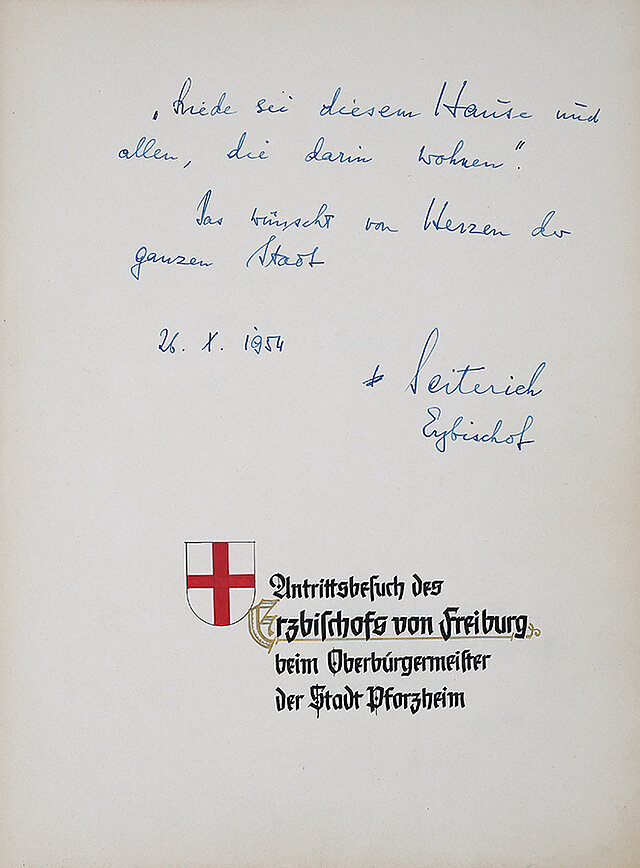 „Friede sei diesem Hause und
allen, die darin wohnen“.
Das wünscht von Herzen der
ganzen Stadt
26. X. 1954
+ Seiterich
Erzbischof
Antrittsbesuch des
Erzbischofs von Freiburg
beim Oberbürgermeister
der Stadt Pforzheim